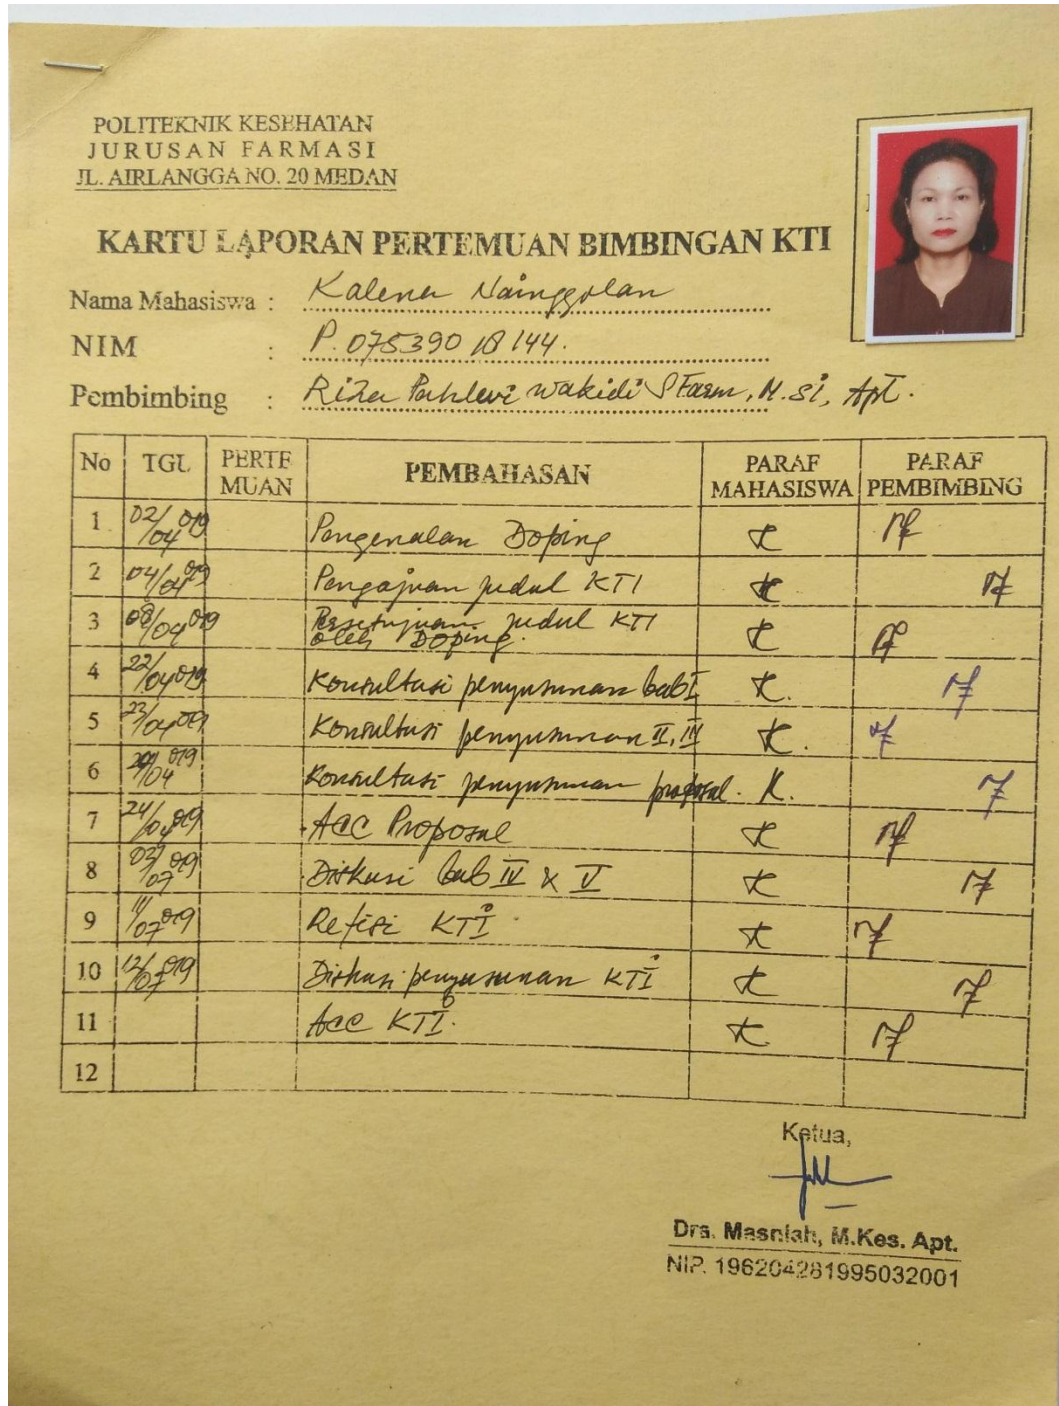 POLITEKNIK KESEHATAN
JURUSAN FARMASI
JL. AIRLANGGA NO. 20 MEDAN
KARTU LAPORAN PERTEMUAN BIMBINGAN KTI
Nama Mahasiswa : Kalena Nainggolan
NIM : P. 07539018144.
Pembimbing : Riza Pahlevi Wakidi S Farm, M.Si, Apt.
No TGL PERTE MUAN PEMBAHASAN PARAF MAHASISWA PARAF PEMBIMBING
1 02/04 019 Pengenalan Doping
2 04/04 019 Pengajuan judul KTI
3 08/04 019 Persetujuan judul KTI oleh Doping.
4 22/04 019 Konsultasi penyusunan bab I
5 23/04 019 Konsultasi penyusunan II, III
6 /04 019 Konsultasi penyusunan proposal.
7 24/04 019 Acc Proposal
8 03/07 019 Diskusi bab IV & V
9 11/07 019 Refisi KTI
10 12/07 019 Diskusi penyusunan KTI
11 Acc KTI.
12
Ketua,
Drs. Masniah, M.Kes. Apt.
NIP. 196204281995032001